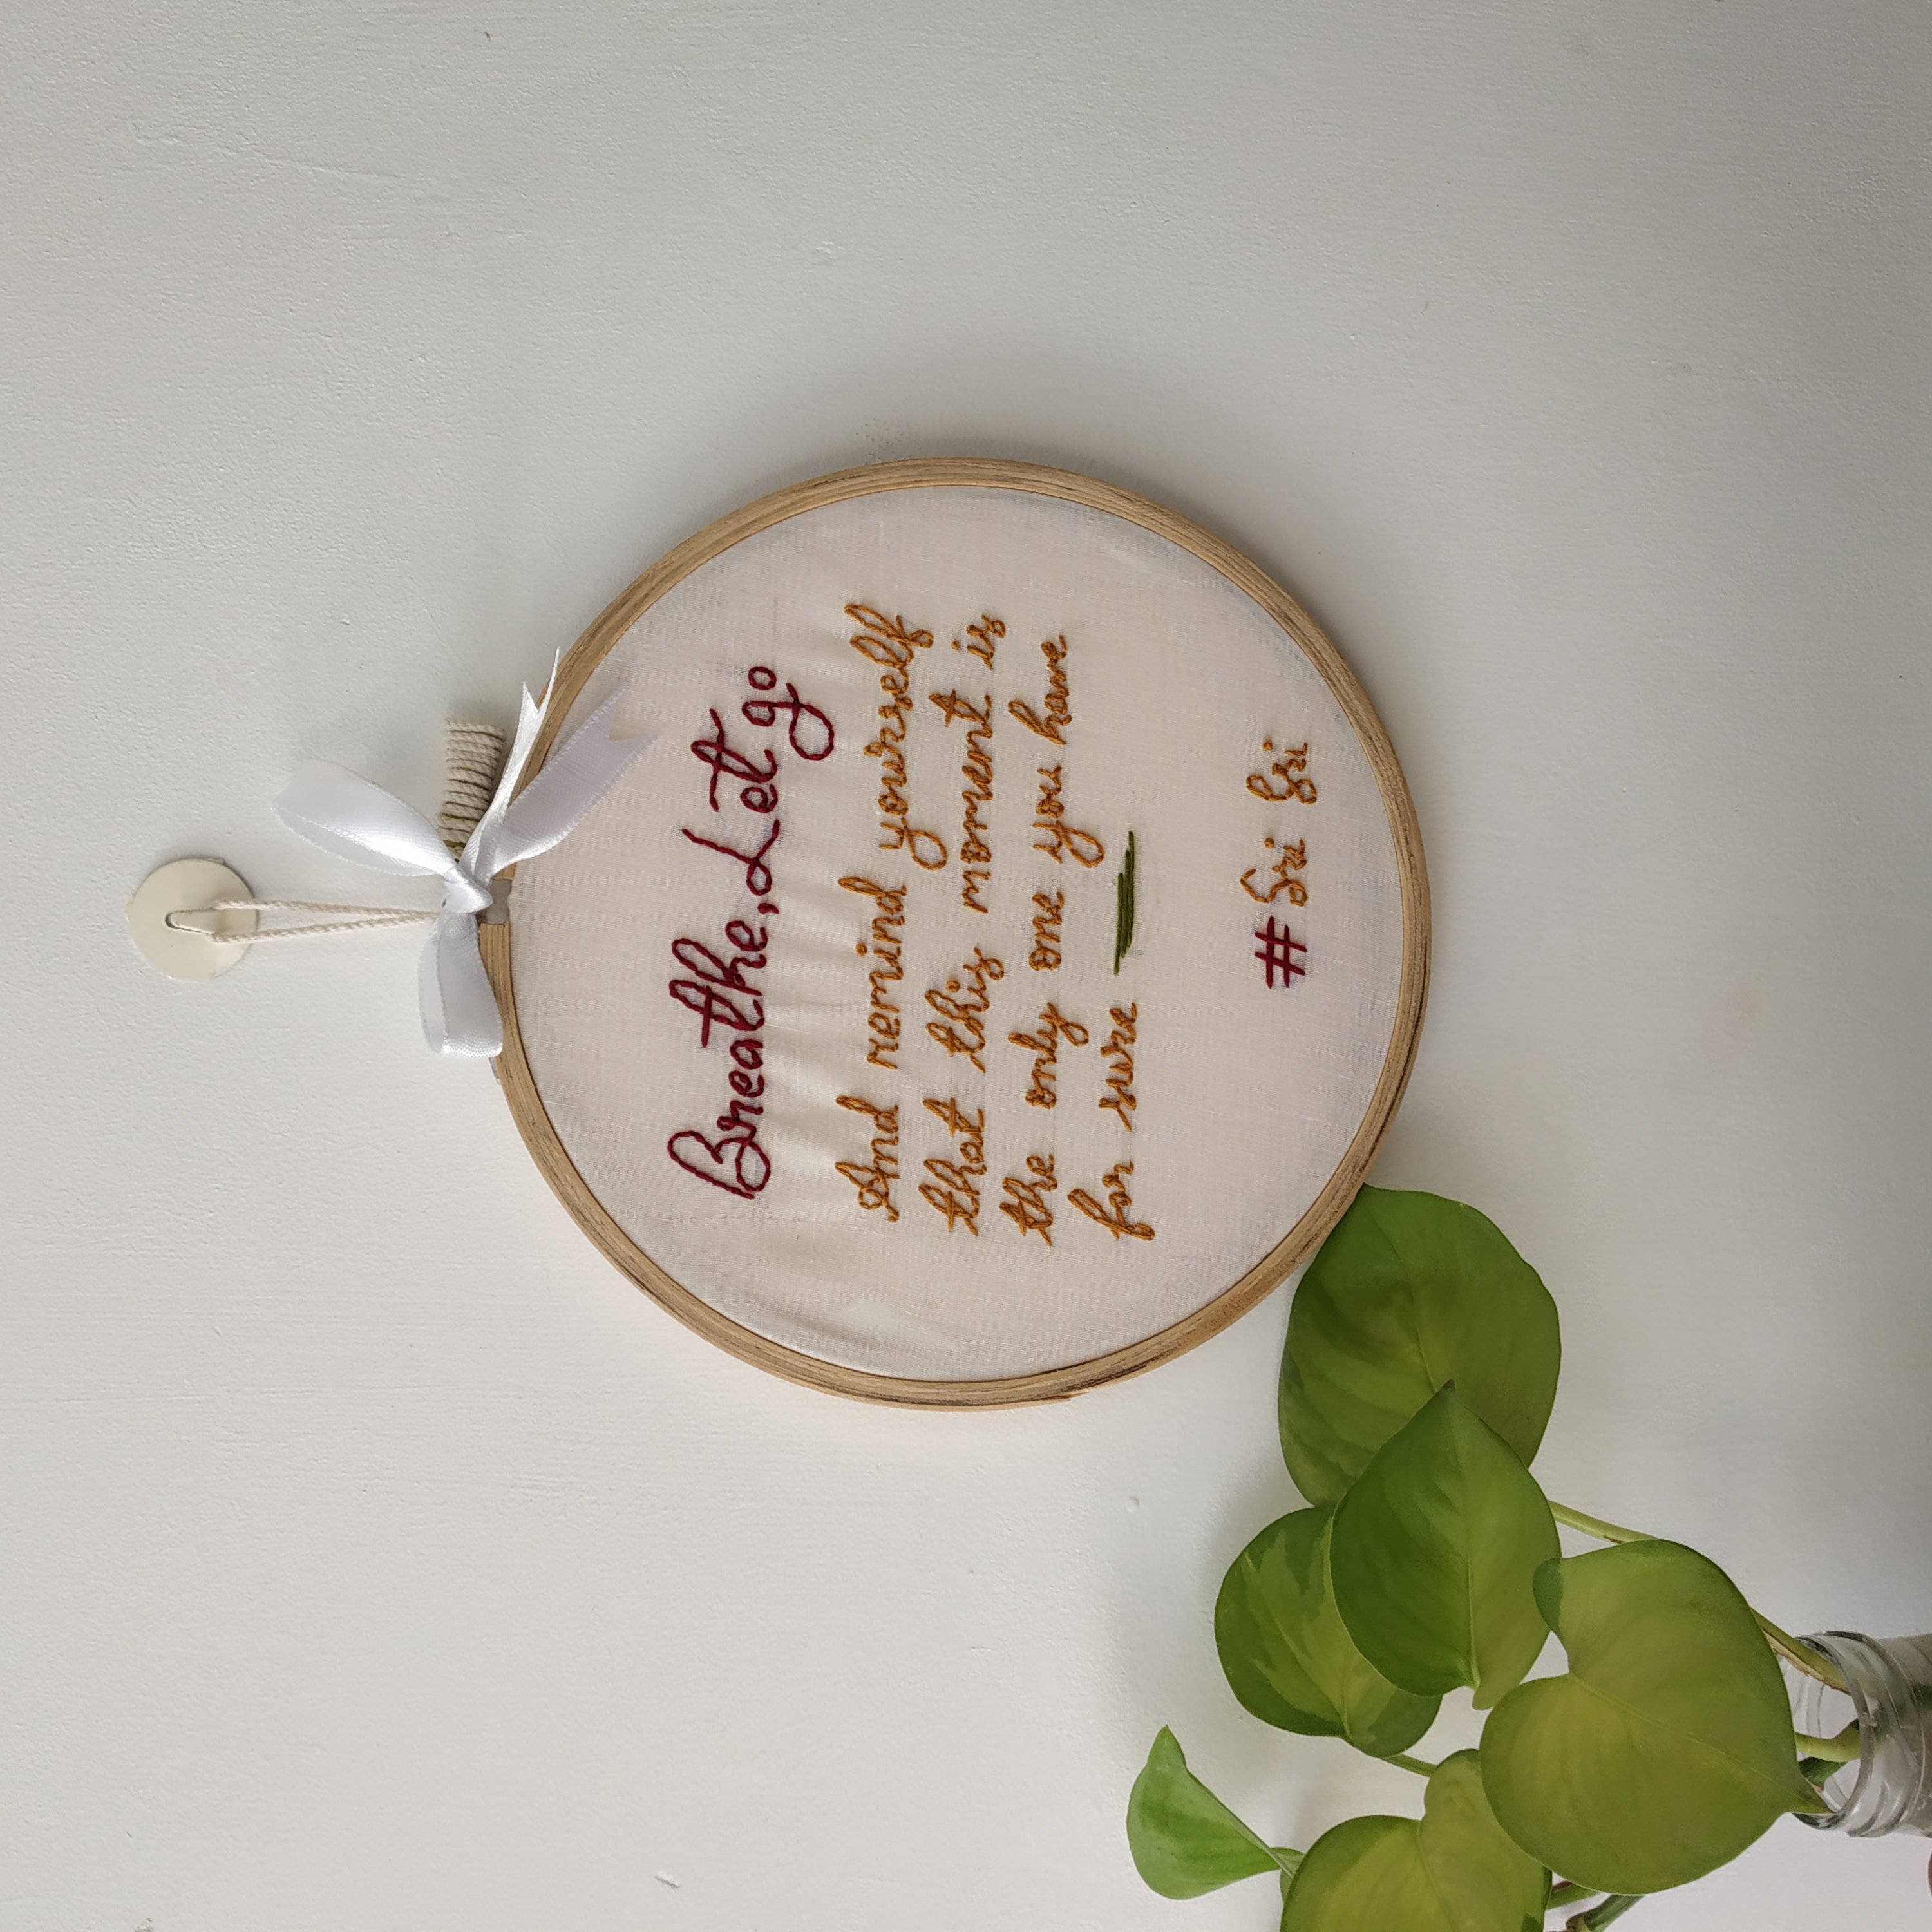 Breathe, Let go
And remind yourself
that this moment is
the only one you have
for sure
#Sri Sri